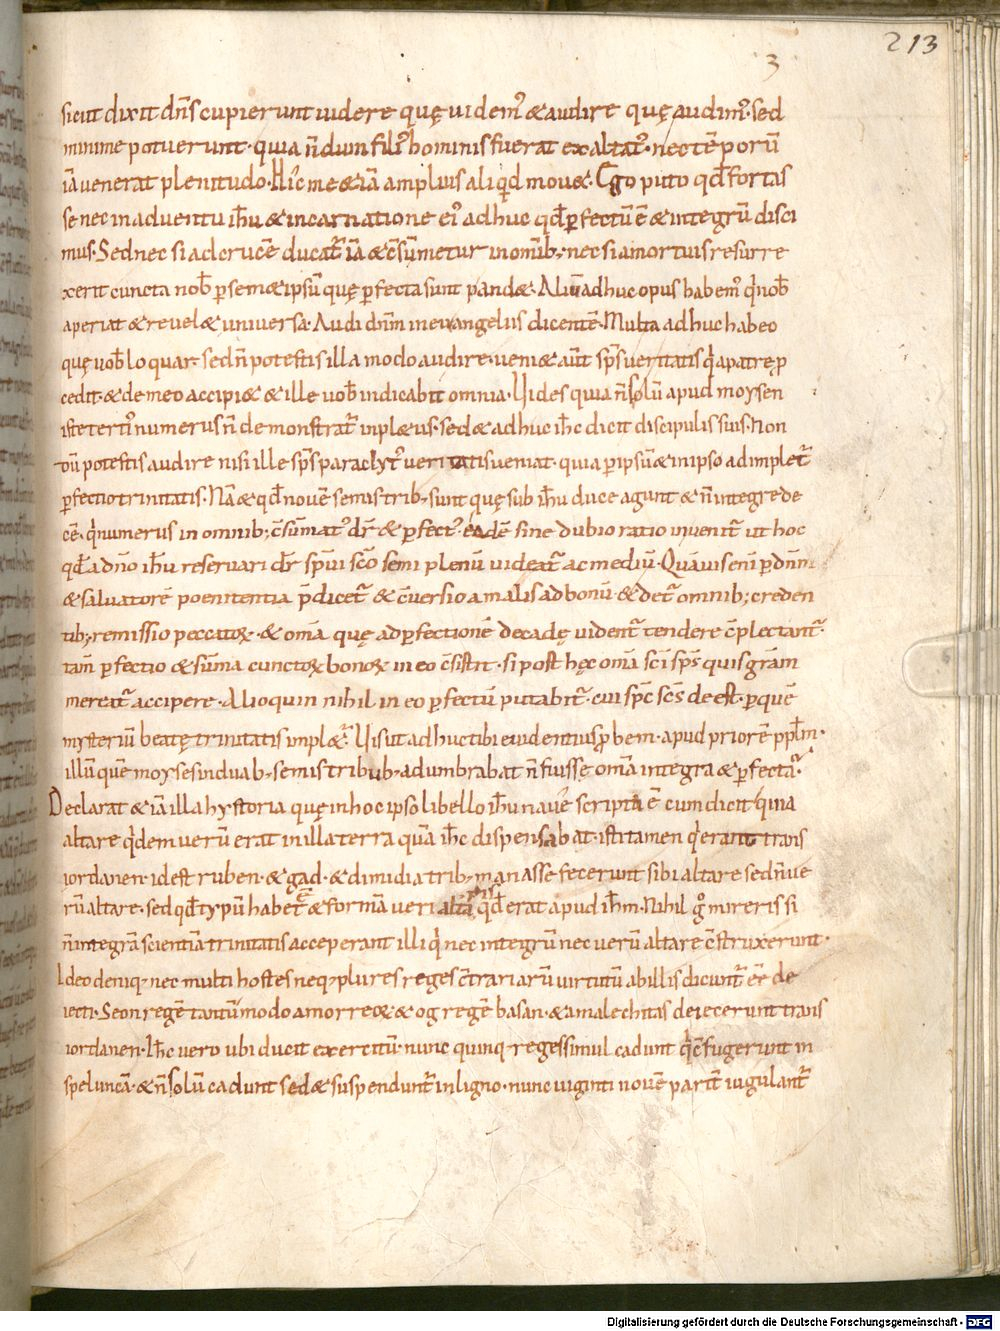 213
3
sicut dixit dn̄s cupierunt uidere quę uidem᾽ &audire quę audim᾽· sed
minime potuerunt· quia n̄dum fili᾽ hominis fuerat exaltat᾽· nec tēporū
iā uenerat plenitudo· Hic me &iā amplius aliqd mou&· Ego puto qđ fortas
se nec in aduentu ih̄u &incarnatione ei᾽ adhuc qđ pfectū ē &integrū disci
mus· Sed nec si ad crucē ducat̄ iā &c̄sūmetur in omīb; nec si a mortuis resurre
xerit cuncta nob̄ p sem&ipsū quę pfecta sunt pand&· Aliū adhuc opus habem᾽ q̄ nob̄
aperiat &reuel& uniuersa· Audi dn̄m in euangeliis dicentē· Multa adhuc habeo
quę uob̄ loquar· sed n̄ potestis illa modo audire· ueni& aūt sp̄s ueritatis q̄ a patre p
cedit· &de meo accipi& &ille uob̄ indicabit omnia· Uides quia n̄ solū apud moysen
iste terti᾽ numerus n̄ demonstrat̄ inpl&us· sed& adhuc ih̄c dicit discipulis suis· Non
dū potestis audire nisi ille sp̄s paraclyt᾽ ueritatis ueniat· quia p ipsū &in ipso adimplet̄
pfectio trinitatis· Nā &qđ nouē semis trib; sunt quę sub ih̄u duce agunt &n̄ integre de
cē· q̄ numerus in omnib; c̄sūmat᾽ dr̄ &pfect᾽· eadē sine dubio ratio inuenit̄ ut hoc
qđ a dn̄o ih̄u reseruari dr̄ sp̄ui sc̄o semiplenū uideat̄ ac mediū· Quāuis enī p dn̄m
&saluatorē poenitentia p̄dicet̄ &c̄uersio a malis ad bonū· &det̄ omnib; creden
tib; remissio peccatoꝝ· &om̄a quę ad pfectionē decadę uident̄ tendere c̄plectant̄·
tam̄ pfectio &sūma cunctoꝝ bonoꝝ in eo c̄sistit· si post hęc om̄a sc̄i sp̄s quis gr̄am
mereat̄ accipere· Alioquin nihil in eo pfectū putabit̄· cui sp̄c sc̄s deest· p quē
mysteriū beatę trinitatis inpl&̄· Uis ut adhuc tibi euidentius pbem· apud priorē pplm̄·
illū quē moyses in duab; semis tribub; adumbrabat n̄ fuisse om̄a integra &pfecta·
Declarat &iā illa hystoria quę in hoc ipso libello ih̄u naue scripta ē cum dicit quia
altare qdem uerū erat in illa terra quā ih̄c dispensabat· isti tamen q̄ erant trans
iordanen· id est ruben· &gad· &dimidia trib; manasse fecerunt sibi altare sed n̄ ue
rū altare· sed qđ typū habet &formā ueri altā qđ erat apud ih̄m· Nihil g̊ mireris si
n̄ integrā scientiā trinitatis acceperant illi q̄ nec integrū nec uerū altare c̄struxerunt·
Ideo deniq; nec multi hostes neq; plures reges c̄trariarū uirtutū ab illis dicunt̄ eē de
iecti· Seon regē tantūmodo amorreo& &og regē basan· &amalechitas deiecerunt trans
iordanen· Ih̄c uero ubi ducit exercitū· nunc quinq; reges simul cadunt q̄ c̄fugerunt in
speluncā· &n̄ solū cadunt sed& suspendunt̄ in ligno· nunc uiginti nouē parit̄ iugulant̄
Digitalisierung gefördert durch die Deutsche Forschungsgemeinschaft - DFG